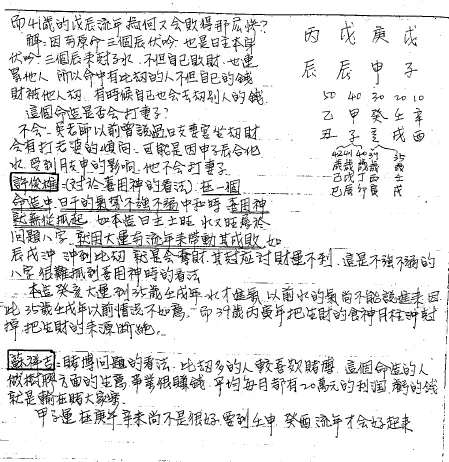 而41歲的戊辰流年為何又會敗得那麼慘?
解:因為原命三個辰伏吟 也是日主本身
伏吟 三個辰來尅子水 不但自己敗財 也連
累他人 所以命中有比劫的人不但自己的錢
財被他人劫 有時候自己也會去劫別人的錢
這個命造是否會打妻子?
不會 老師以前曾說過日支妻宮坐劫財
會有打老婆的傾向 可能是因申子辰合化
水 受到月支申的影响 他不會打妻子
丙 戊 庚 戊
辰 辰 申 子
50 40 30 20 10
乙 甲 癸 壬 辛
丑 子 亥 戌 酉
42 41 40 39 35
歲 歲 歲 歲 歲
己 戊 丁 丙 壬
巳 辰 卯 寅 戌
許俊雄:(对於善用神的看法) 在一個
命造中 日干的氣勢不強不弱中和時 善用神
就難從抓起 如本造日主土旺 水又旺屬於
問題八字 就用大運与流年來帶動其成敗 如
辰戌沖 沖到比劫 就是会奪財 其対應対財運不利 這是不強不弱的
八字 很難抓到善用神時的看法
本造癸亥大運到35歲壬戌年 水才進氣 以前水的氣尚不能說進來 因
此35歲壬戌年以前情況不如意 而39歲丙寅年把生財的食神月柱沖尅
掉 把生財的來源斷絕。
蘇祥吉:賭博問題的看法 比劫多的人較喜歡賭博 這個命造的人
做橡膠方面的生意 事業很賺錢 平均每月都有20萬元的利潤 賺的錢
就是輸在賭大家樂
甲子運 在庚午 辛未尚不是很好 要到壬申 癸酉 流年才会好起來